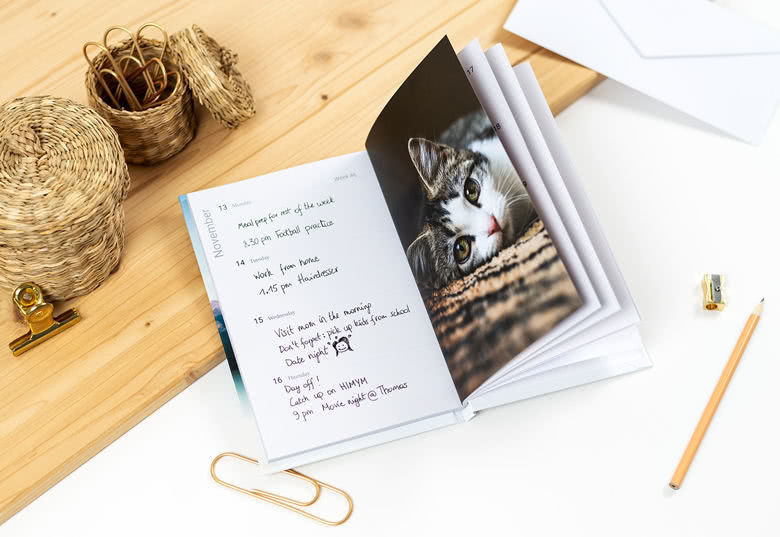 Week 46
November
13 Monday
Meal prep for rest of the week
8.30 pm Football practice
14 Tuesday
Work from home
1.15 pm Hairdresser
15 Wednesday
Visit mom in the morning
Don't forget: pick up kids from school
Date night
16 Thursday
Day off!
Catch up on HIMYM
9 pm Movie night @ Thomas
17
18